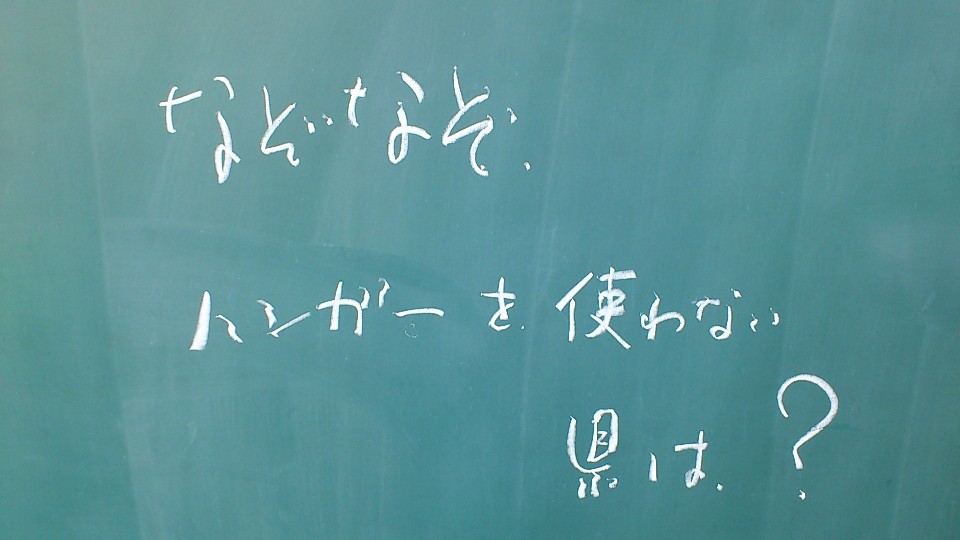 なぞなぞ
ハンガーを使わない
県は?